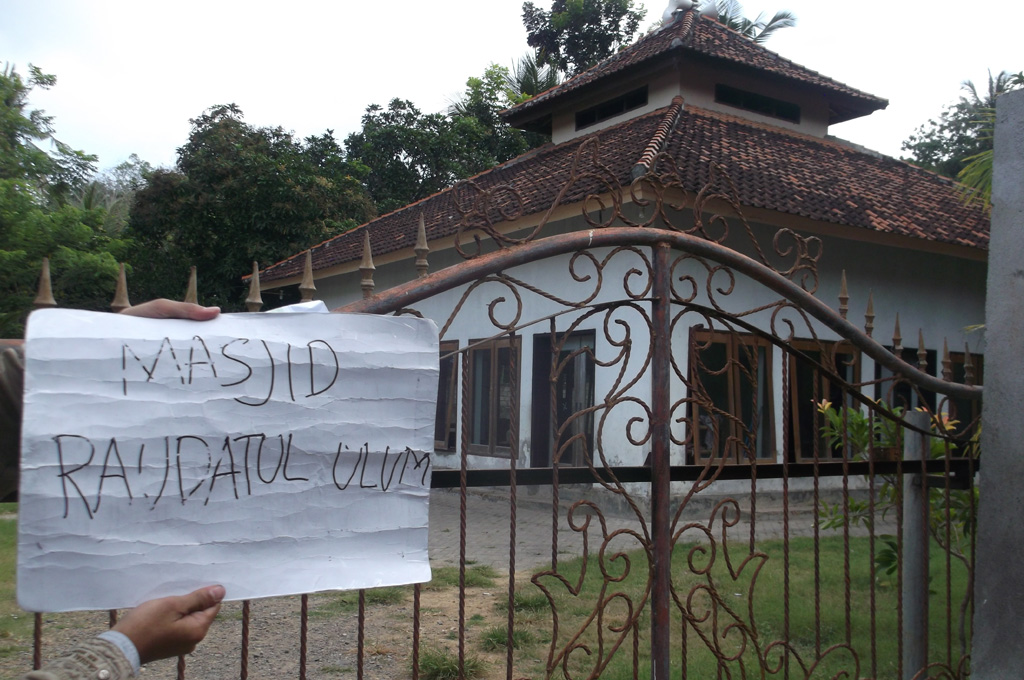 MASJID
RAUDATUL ULUM